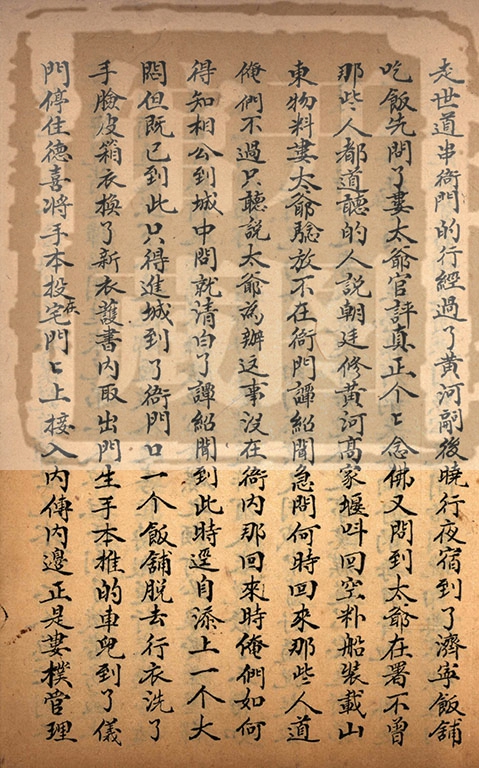 走世道串衙門的行經過了黄河嗣後曉行夜宿到了濟寧飯舖
吃飯先問了婁太爺官評真正个〻念佛又問到太爺在署不曾
那些人都道聽的人説朝廷修黄河髙家堰呌回空粆船装載山
東物料婁太爺騐放不在衙門譚紹聞急問何時回來那些人道
俺們不過只聽説太爺為辦这事没在衙内那回來時俺們如何
得知相公到城中問就清白了譚紹聞到此時逕自添上一个大
悶但既已到此只得進城到了衙門口一个飯舖脱去行衣洗了
手臉皮箱衣換了新衣護書内取出門生手本推的車兒到了儀
門停住德喜将手本投在宅門〻上接入内傳内邊正是婁樸管理